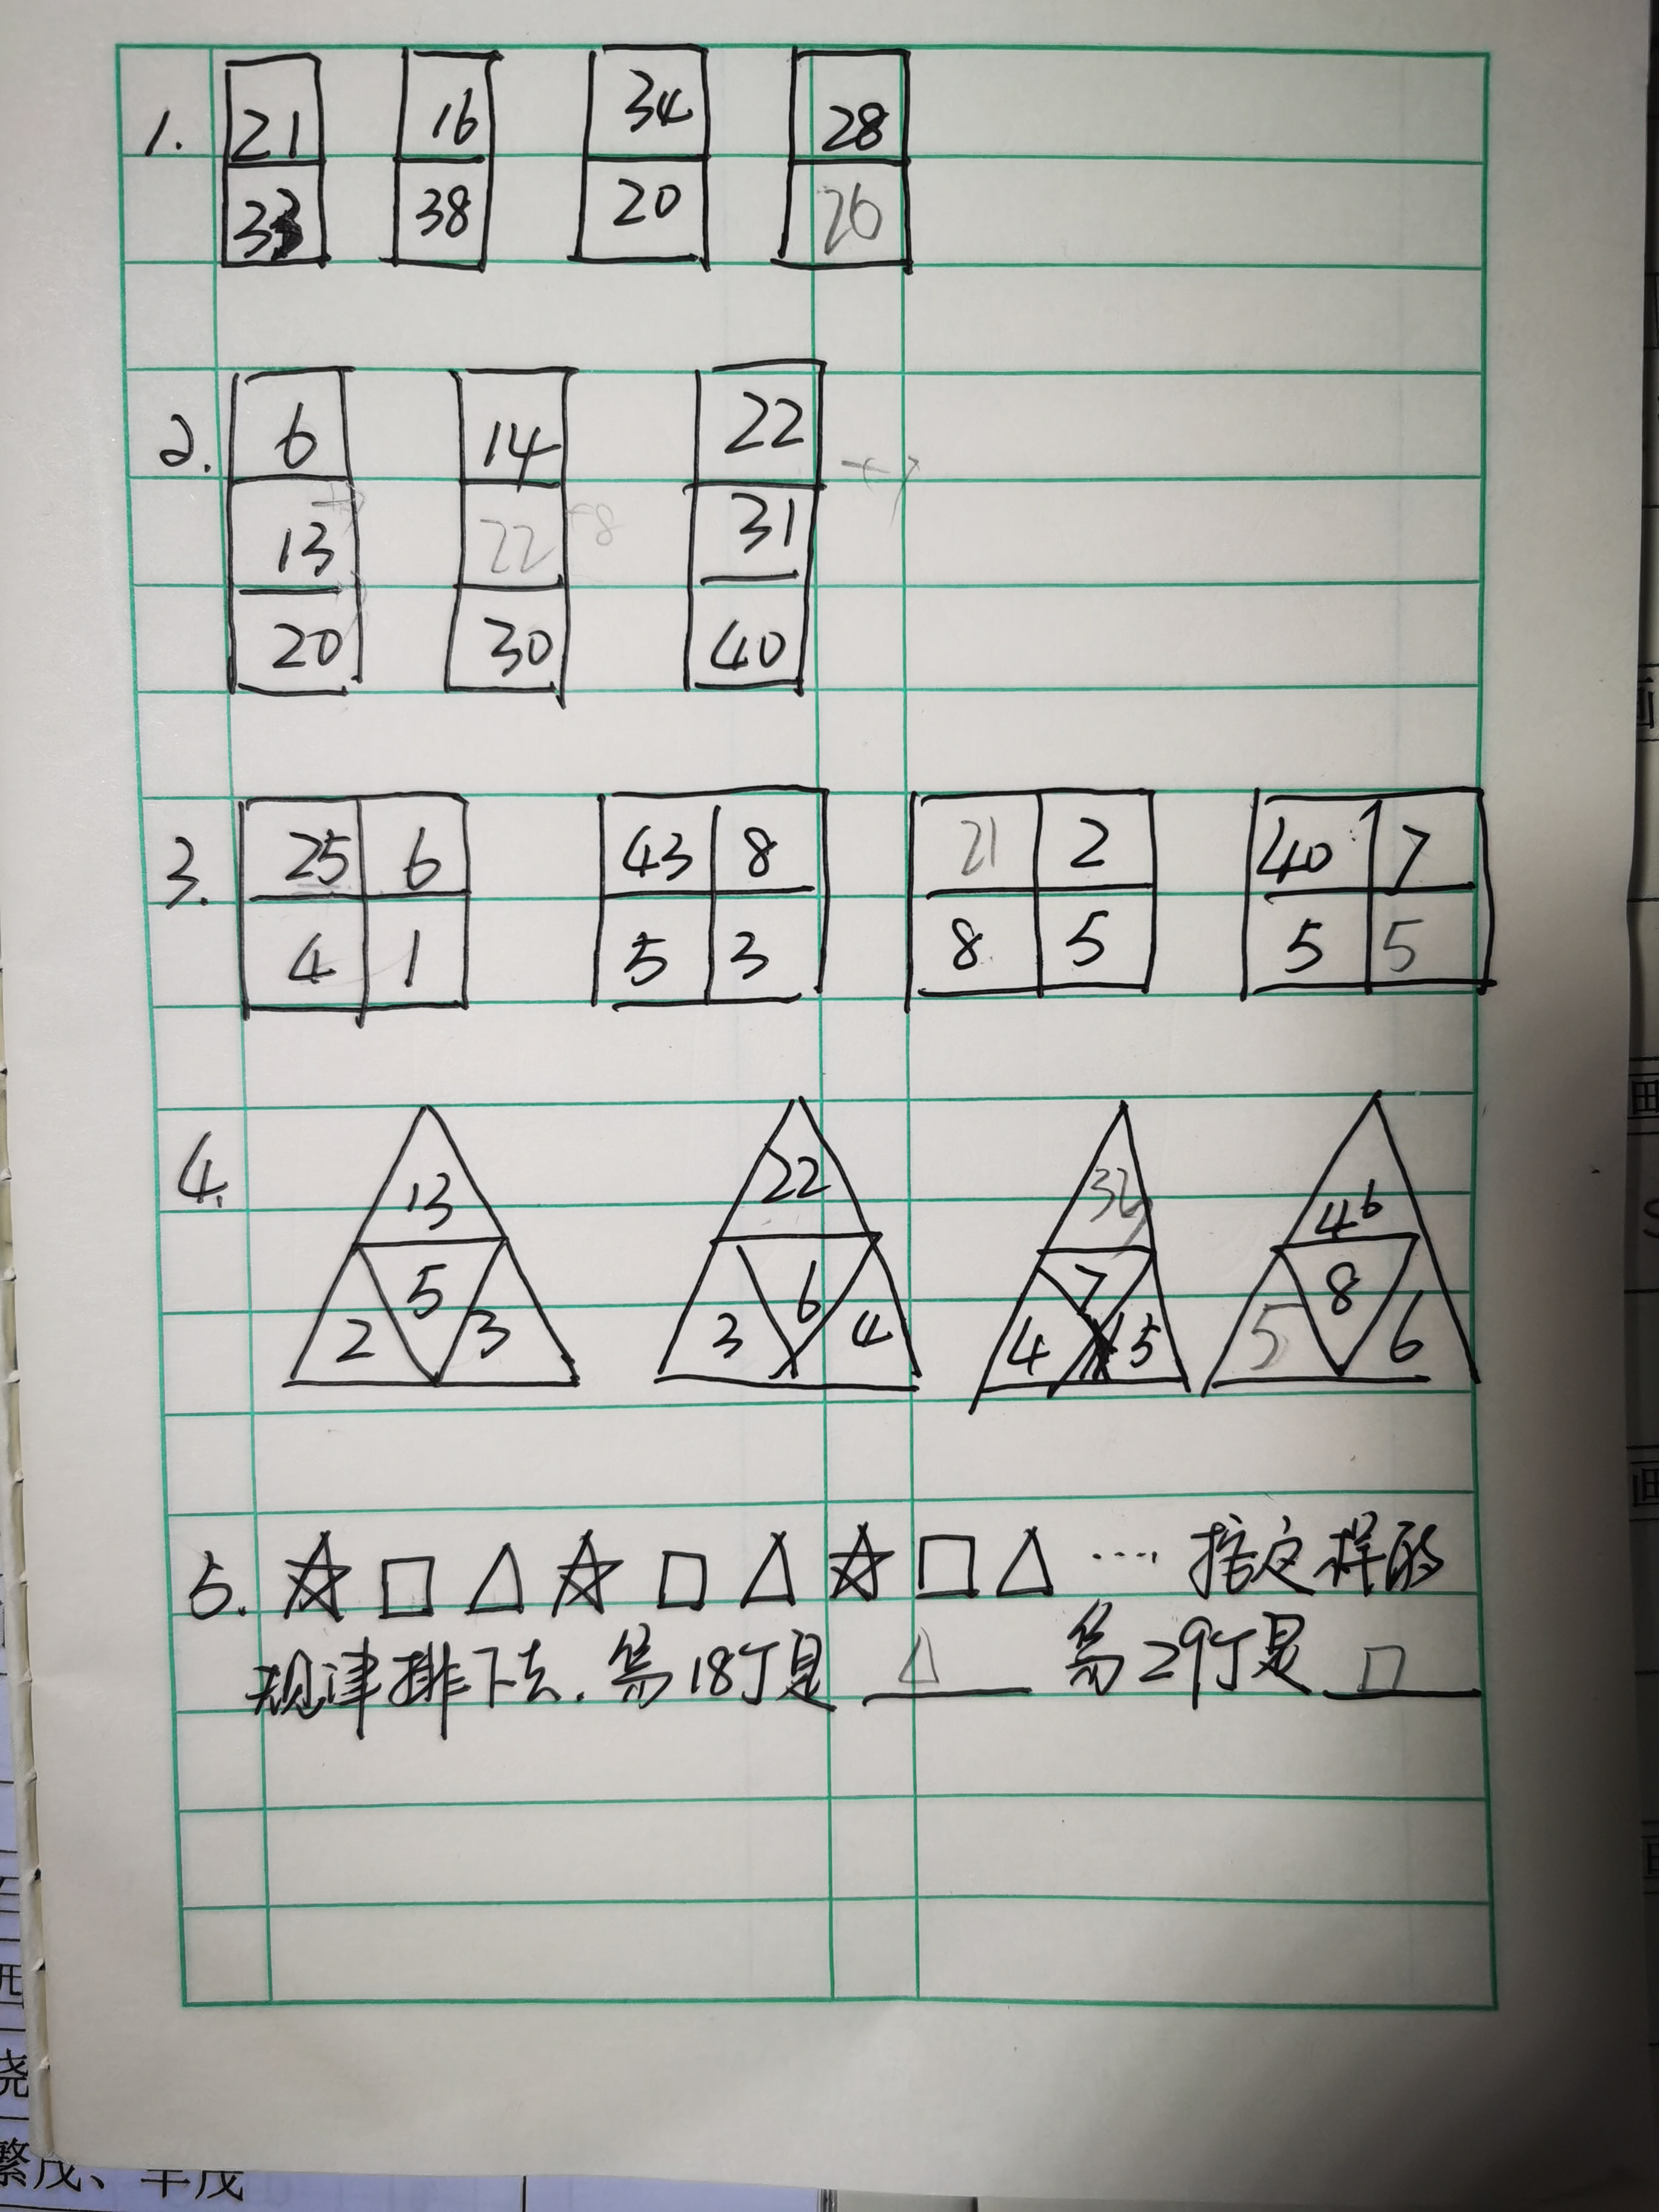 1. 21 16 34 28
33 38 20 26
2. 6 14 22
13 22 31
20 30 40
3. 25 6 43 8 21 2 40 7
4 1 5 3 8 5 5 5
4. 13 22 46
5 6 7 8
2 3 3 4 4 5 5 6
5. ☆ □ △ ☆ □ △ ☆ □ △ …… 按这样的
规律排下去. 第18个是 △ 第29个是 □
繁茂、丰茂